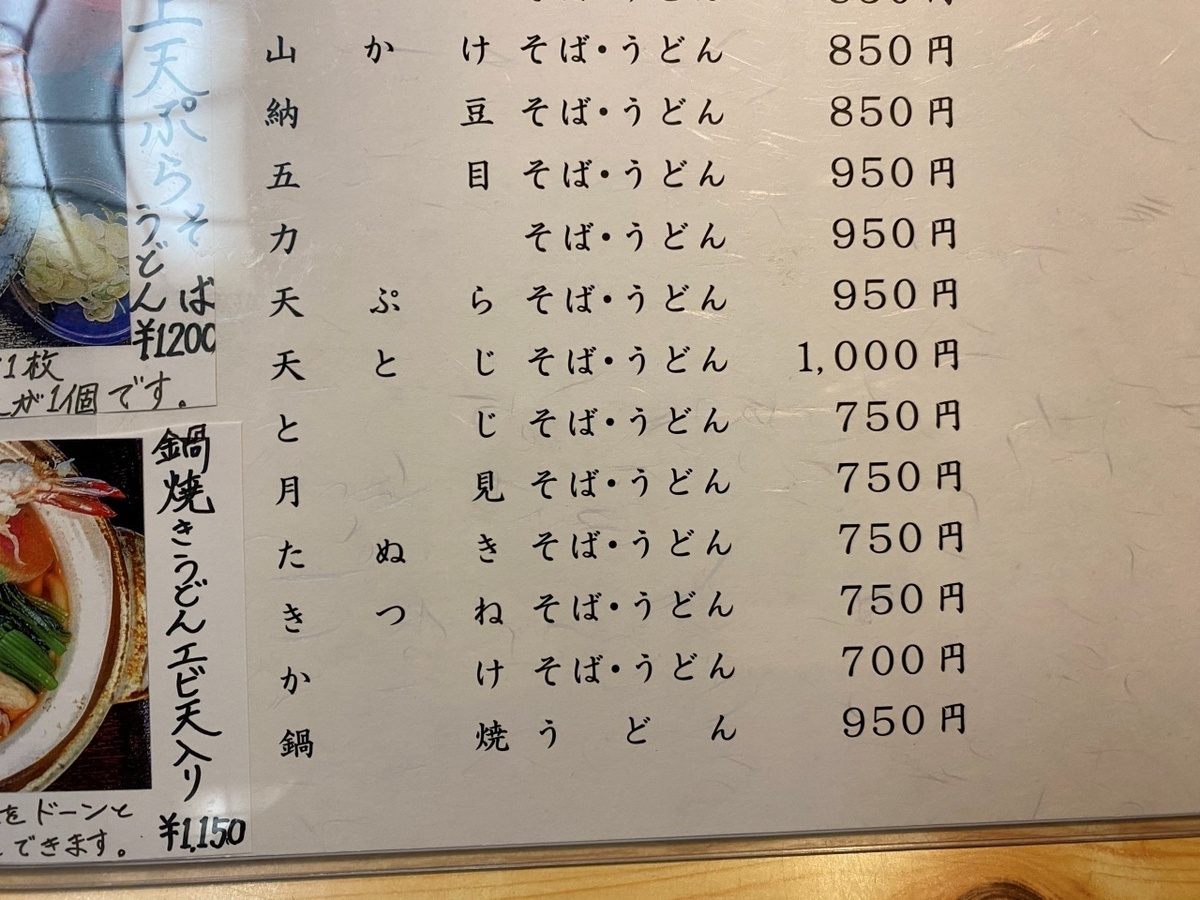 山かけそば・うどん 850円
納豆そば・うどん 850円
五目そば・うどん 950円
力そば・うどん 950円
天ぷらそば・うどん 950円
天とじそば・うどん 1,000円
とじそば・うどん 750円
月見そば・うどん 750円
たぬきそば・うどん 750円
きつねそば・うどん 750円
かけそば・うどん 700円
鍋焼うどん 950円
上天ぷらそば
うどん
¥1200
1枚
が1個です。
鍋焼きうどんエビ天入り
¥1,150
をドーンと
できます。